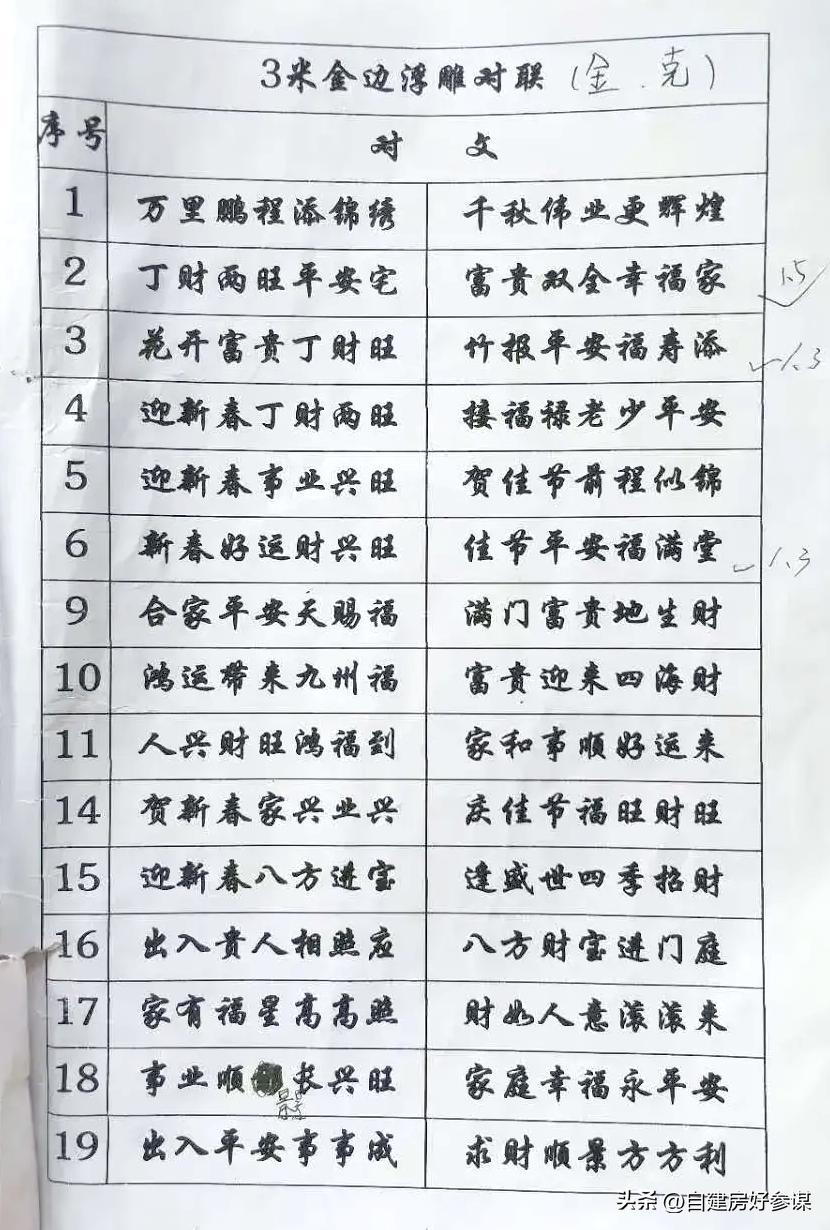 3米金边浮雕对联(金.克)
序号 对文
1 万里鹏程添锦绣 千秋伟业更辉煌
2 丁财两旺平安宅 富贵双全幸福家 1.5
3 花开富贵丁财旺 竹报平安福寿添 ✓1.3
4 迎新春丁财两旺 接福禄老少平安
5 迎新春事业兴旺 贺佳节前程似锦
6 新春好运财兴旺 佳节平安福满堂 ✓1.3
9 合家平安天赐福 满门富贵地生财
10 鸿运带来九州福 富贵迎来四海财
11 人兴财旺鸿福到 家和事顺好运来
14 贺新春家兴业兴 庆佳节福旺财旺
15 迎新春八方进宝 逢盛世四季招财
16 出入贵人相照应 八方财宝进门庭
17 家有福星高高照 财如人意滚滚来
18 事业顺 长兴旺 家庭幸福永平安
景
19 出入平安事事成 求财顺景方方利
头条 @自建房好参谋